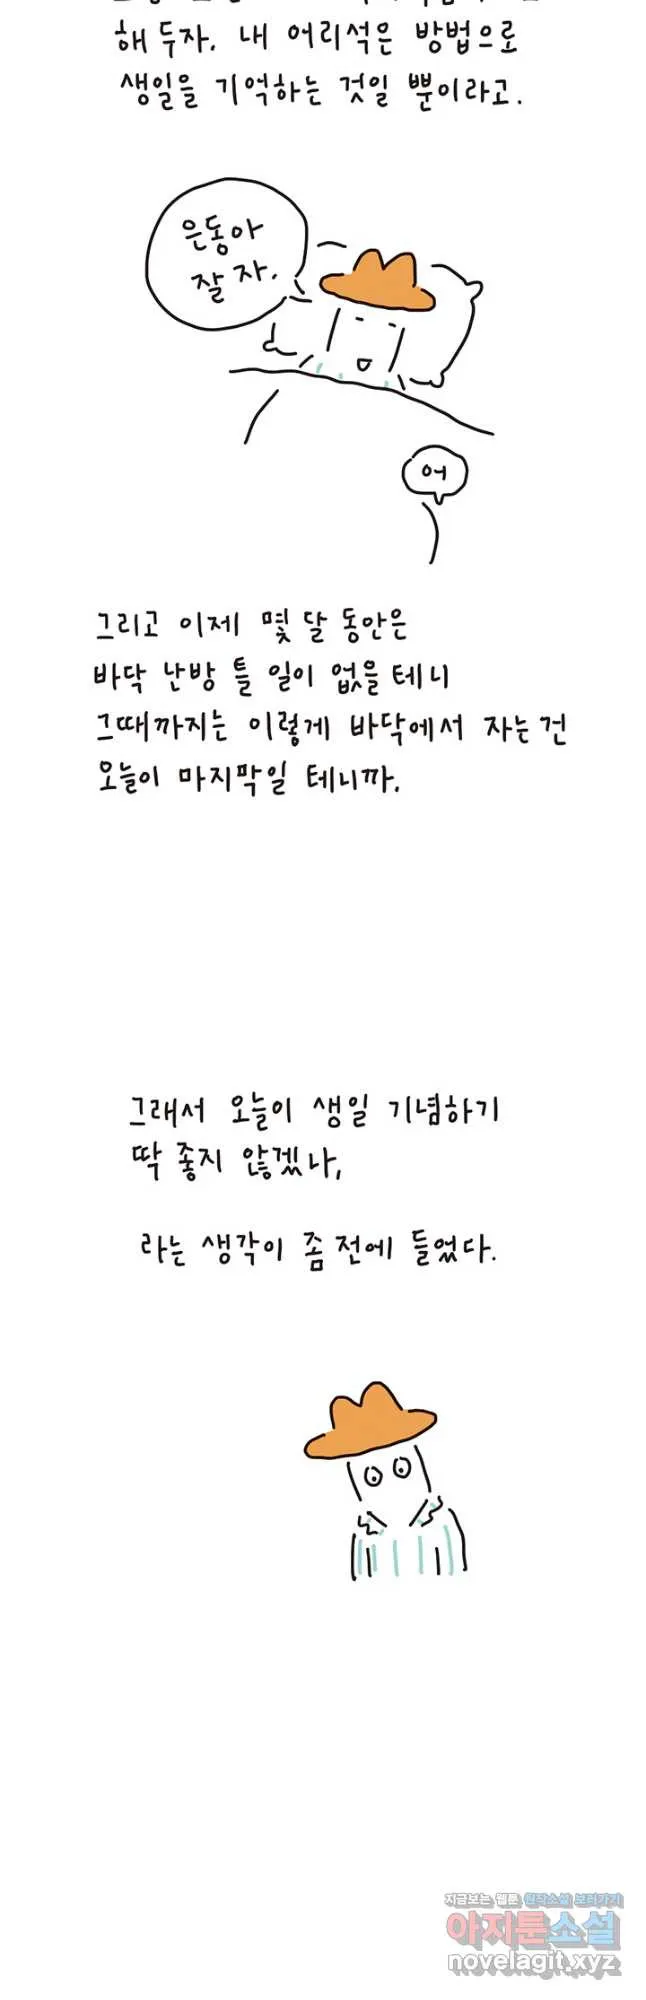 해 두자. 내 어리석은 방법으로
생일을 기억하는 것일 뿐이라고.
은동아
잘 자.
어
그리고 이제 몇 달 동안은
바닥 난방 틀 일이 없을 테니
그때까지는 이렇게 바닥에서 자는 건
오늘이 마지막일 테니까.
그래서 오늘이 생일 기념하기
딱 좋지 않겠나,
라는 생각이 좀 전에 들었다.
지금보는 웹툰 원작소설 보러가기
아지툰소설
novelagit.xyz